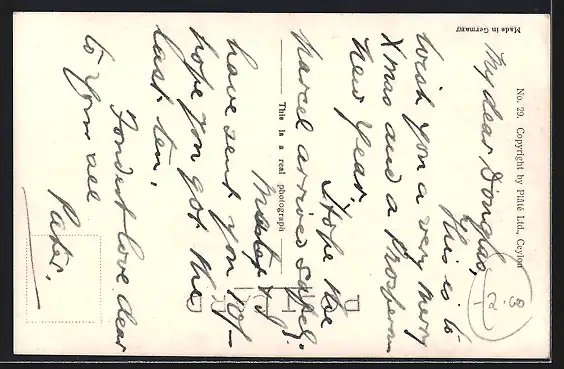 Made in Germany
No. 29. Copyright by Plâté Ltd., Ceylon
This is a real photograph
POST CARD
My dear Douglas,
This is to
wish you a very merry
Xmas and a Prosperous
New Year.
Hope the
parcel arrived safely.
I
have sent you 10/-
hope you got the
last ten.
Fondest love dear
to you all
Pater.